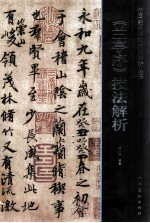 《兰亭序》技法解析
永和九年歲在癸丑暮春之初會
于會稽山陰之蘭亭脩稧事
也羣賢畢至少長咸集此地
有
崇山
峻領茂林脩竹又有清流激